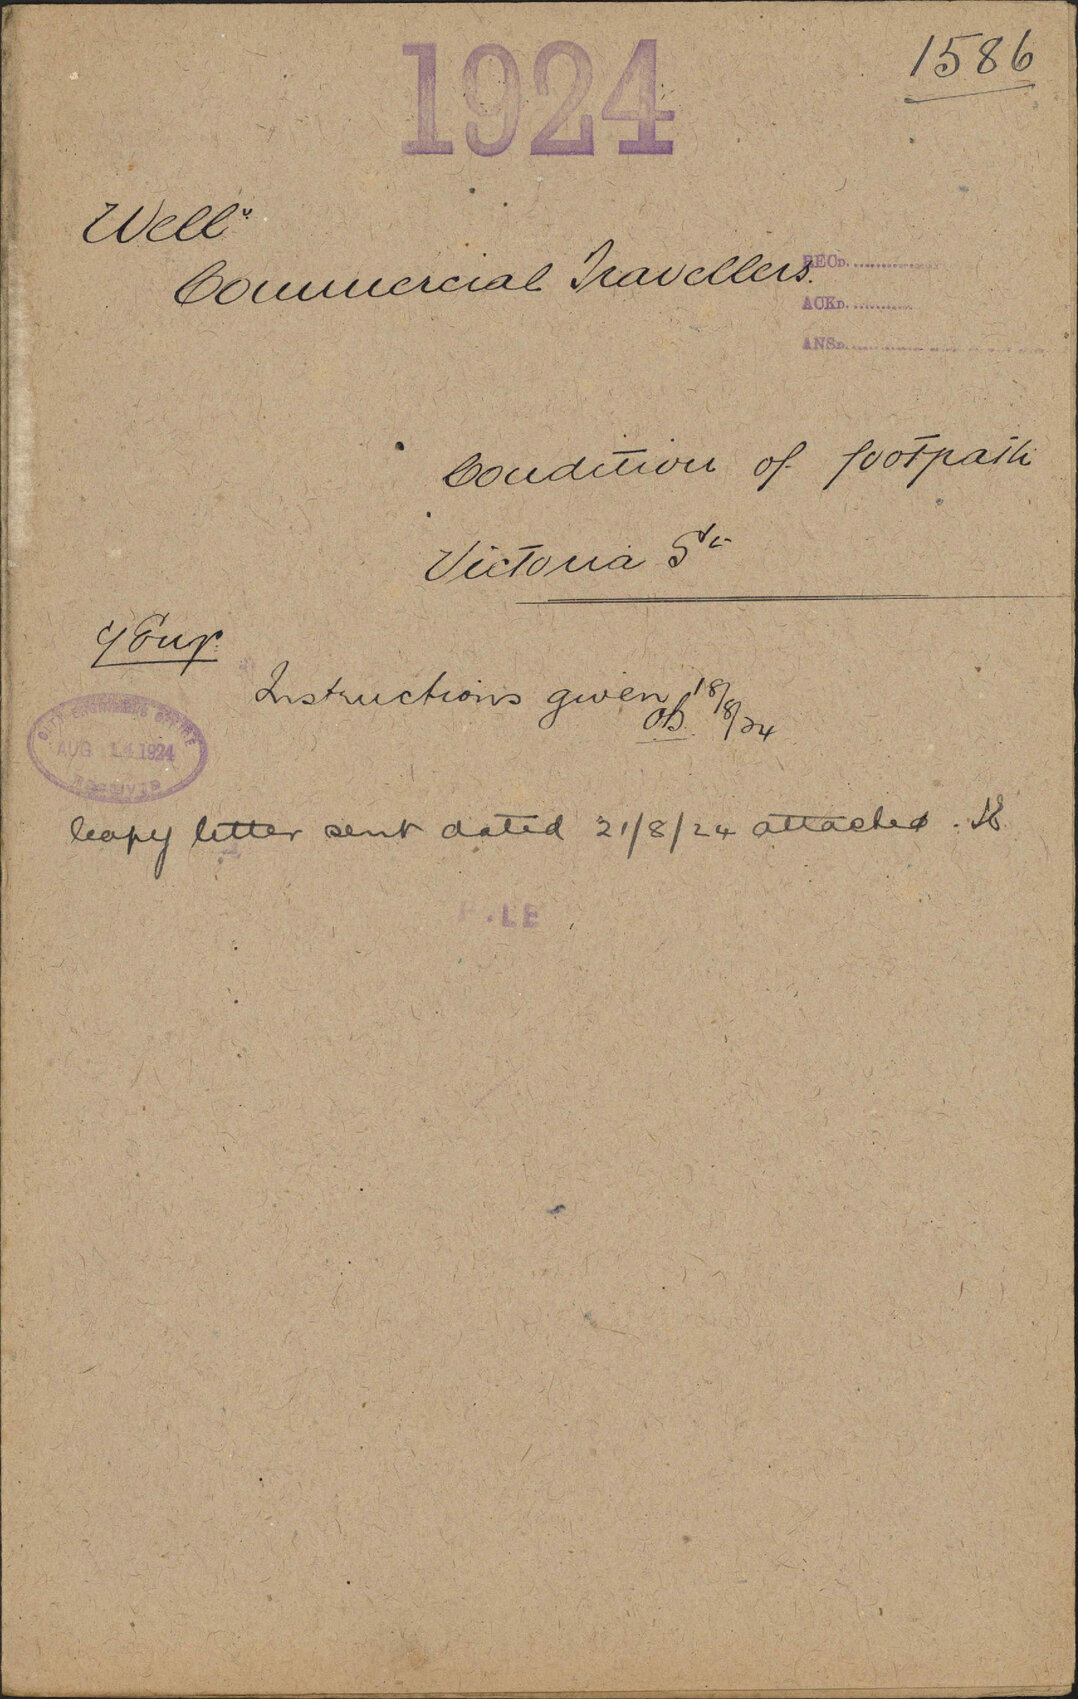 1924
1586
Well.
Commercial Travellers.
RECD..............
ACKD..............
ANSD..............
Condition of footpath
Victoria St.
C/Eng.
Instructions given 18/8/24
CITY ENGINEERS OFFICE
AUG 14 1924
RECEIVED
Copy letter sent dated 21/8/24 attached.
FILE